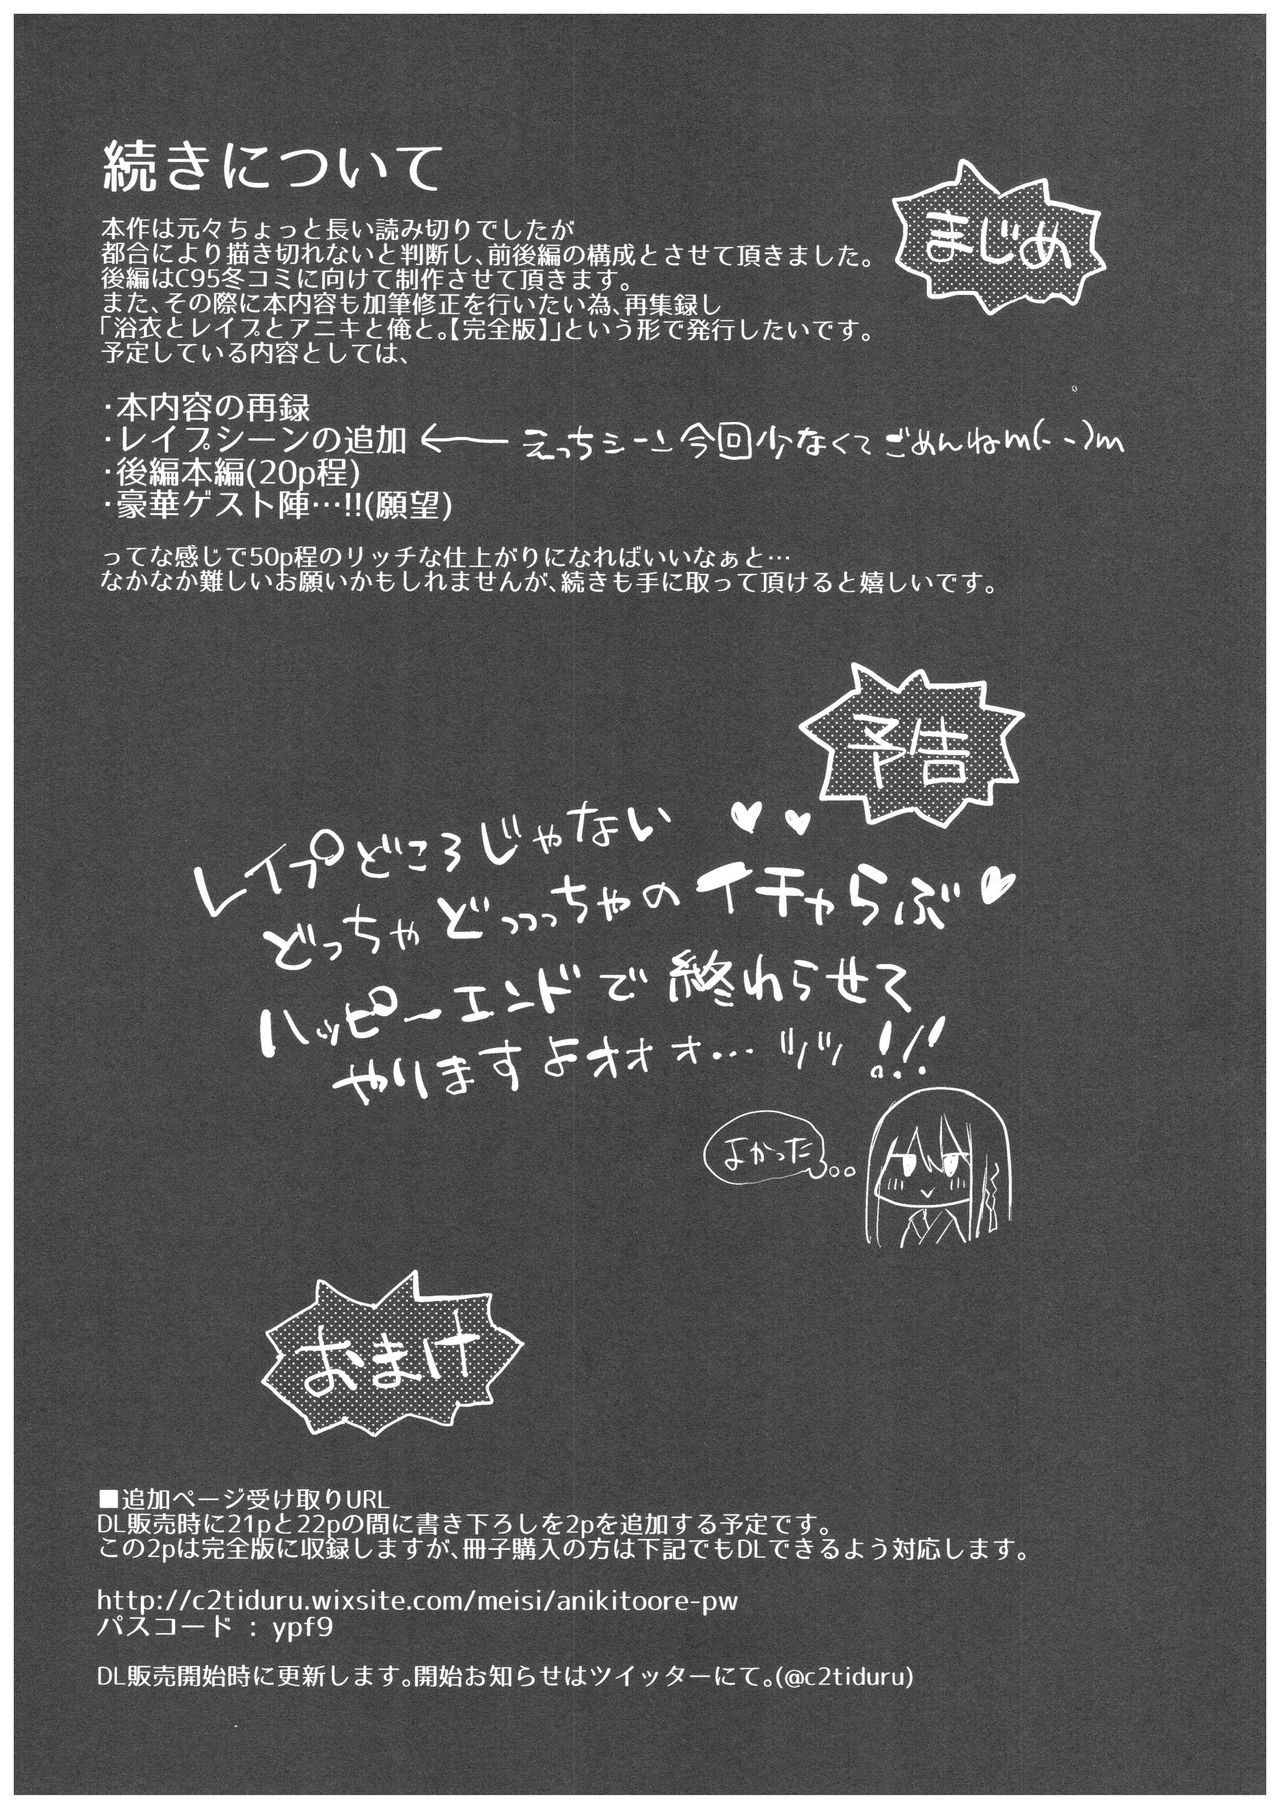 続きについて
まじめ
本作は元々ちょっと長い読み切りでしたが
都合により描き切れないと判断し、前後編の構成とさせて頂きました。
後編はC95冬コミに向けて制作させて頂きます。
また、その際に本内容も加筆修正を行いたい為、再集録し
「浴衣とレイプとアニキと俺と。【完全版】」という形で発行したいです。
予定している内容としては、
・本内容の再録
・レイプシーンの追加 ← えっちシーン今回少なくてごめんねm(--)m
・後編本編(20p程)
・豪華ゲスト陣…!!(願望)
ってな感じで50p程のリッチな仕上がりになればいいなぁと…
なかなか難しいお願いかもしれませんが、続きも手に取って頂けると嬉しいです。
予告
レイプどころじゃない♥♥
どっちゃどっっっちゃのイチャらぶ♥
ハッピーエンドで終わらせて
やりますよオォォ…ッッ!!
よかった
おまけ
■追加ページ受け取りURL
DL販売時に21pと22pの間に書き下ろしを2pを追加する予定です。
この2pは完全版に収録しますが、冊子購入の方は下記でもDLできるよう対応します。
http://c2tiduru.wixsite.com/meisi/anikitoore-pw
パスコード : ypf9
DL販売開始時に更新します。開始お知らせはツイッターにて。(@c2tiduru)